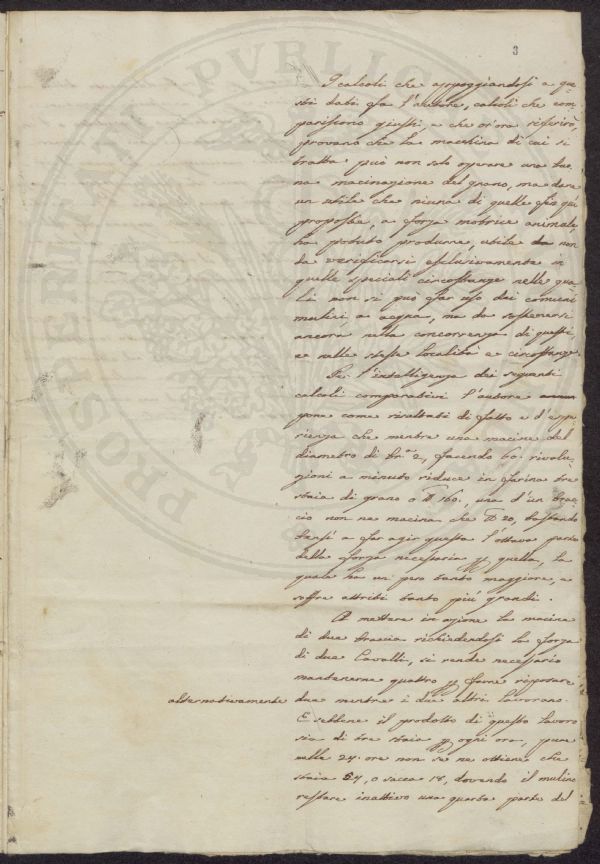 3
I calcoli che appoggiandosi a que-
sti dati fa l'autore, calcoli che com-
pariscono giusti, e che or'ora riferirò,
provano che la macchina di cui si
tratta può non solo operare una buo-
na macinazione del grano, ma dare
un utile che niuna di quelle fin qui
proposte, a forza motrice animale
ha potuto produrre, utile da non
da verificarsi esclusivamente in
quelle speciali circostanze nelle qua-
li non si può far uso dei comuni
mulini a acqua, ma da sostenersi
ancora nella concorrenza di questi,
e nelle stesse località e circostanze.
Per l'intelligenza dei seguenti
calcoli comparativi l'autore
pone come resultati di fatto e d'espe-
rienza che mentre una macine del
diametro di br.a 2, facendo 60. rivolu-
zioni a minuto riduce in farina tre
staia di grano o ℔ 160., una d'un brac-
cio non ne macina che ℔ 20, bastando
bensì a far agir questa l'ottava parte
della forza necessaria p quella, la
quale ha un peso tanto maggiore, e
soffre attriti tanto più grandi.
A mettere in azione la macine
di due braccia richiedendosi la forza
di due Cavalli, si rende necessario
mantenerne quattro p farne riposare
alternativamente due mentre i due altri lavorano.
E sebbene il prodotto di questo lavoro
sia di tre staia p ogni ora, pure
nelle 24. ore non se ne ottiene che
staia 54, o sacca 18, dovendo il mulino
restare inattivo una quarta parte del
PROSPERITATI PVBLICAE